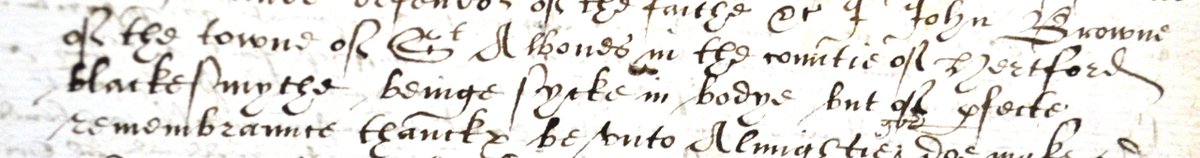 defendor of the faithe &c I John Browne
of the towne of St Albones in the countie of Hertford
blackesmythe beinge sycke in bodye but of pfecte
remembraunce thanckx be unto Almightie god doe make